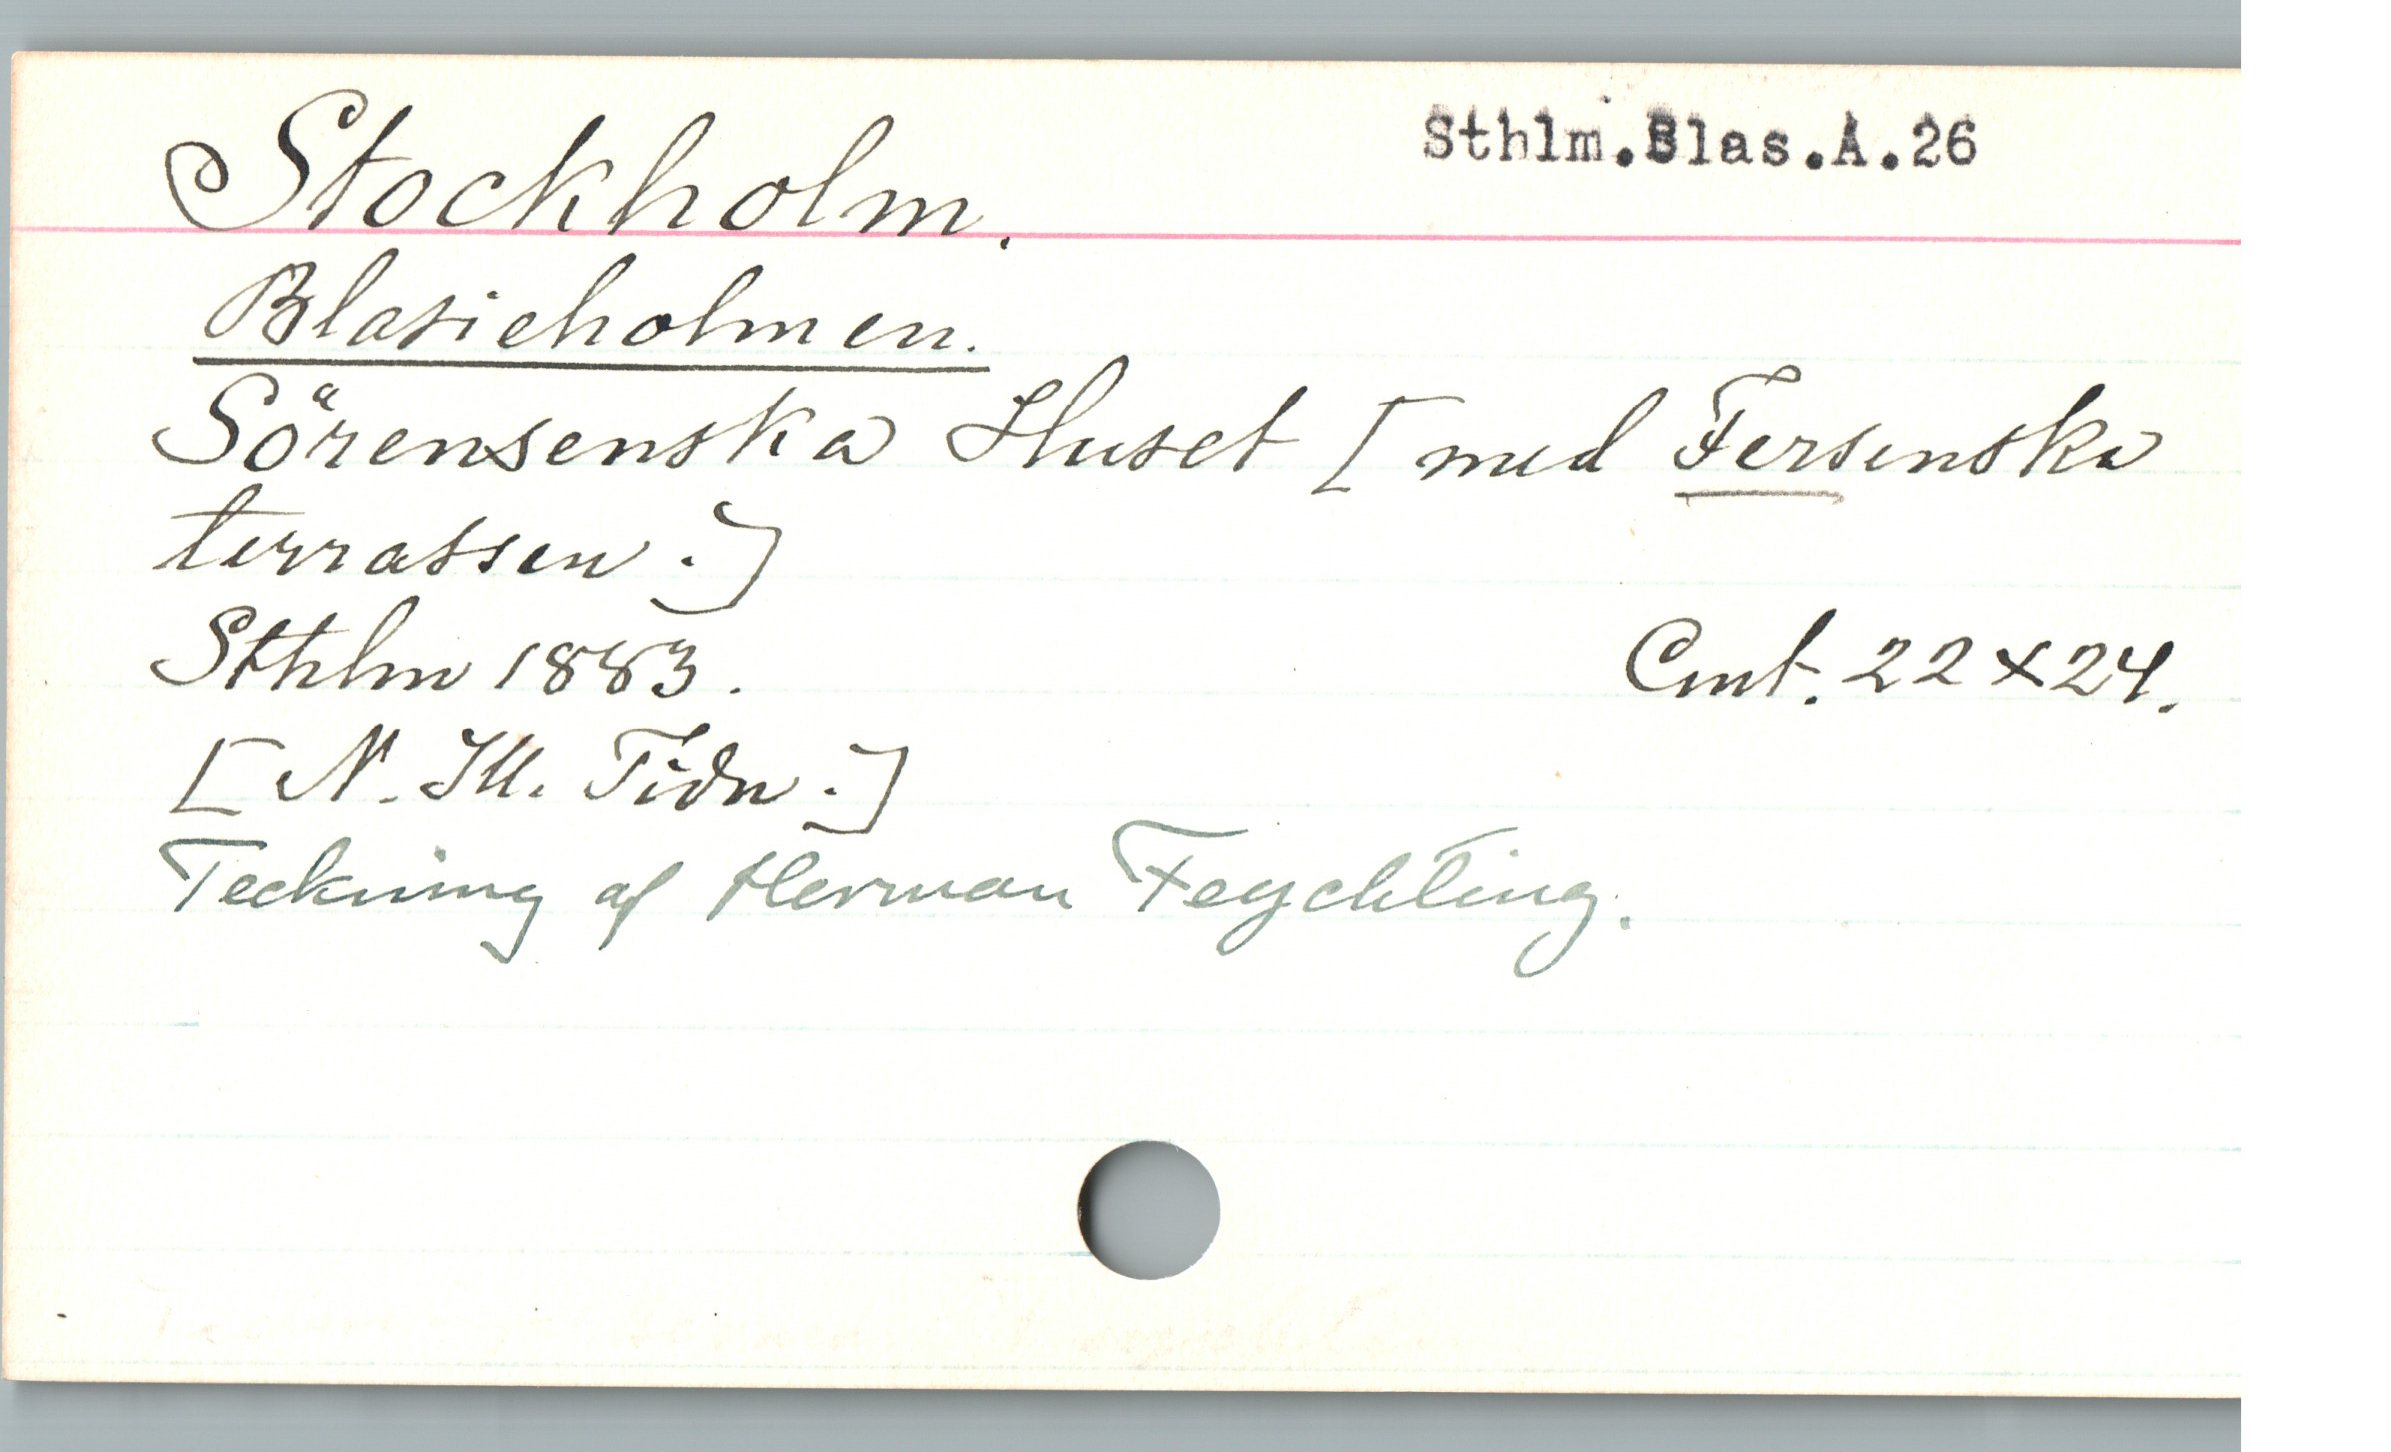 Stockholm. Sthlm.Blas.A.26
Blasieholmen.
Sörensenska Huset [med Fersenska
terrassen.]
Sthlm 1883. Cmt. 22x24.
[N. Ill. Tidn.]
Teckning af Herman Feychting.